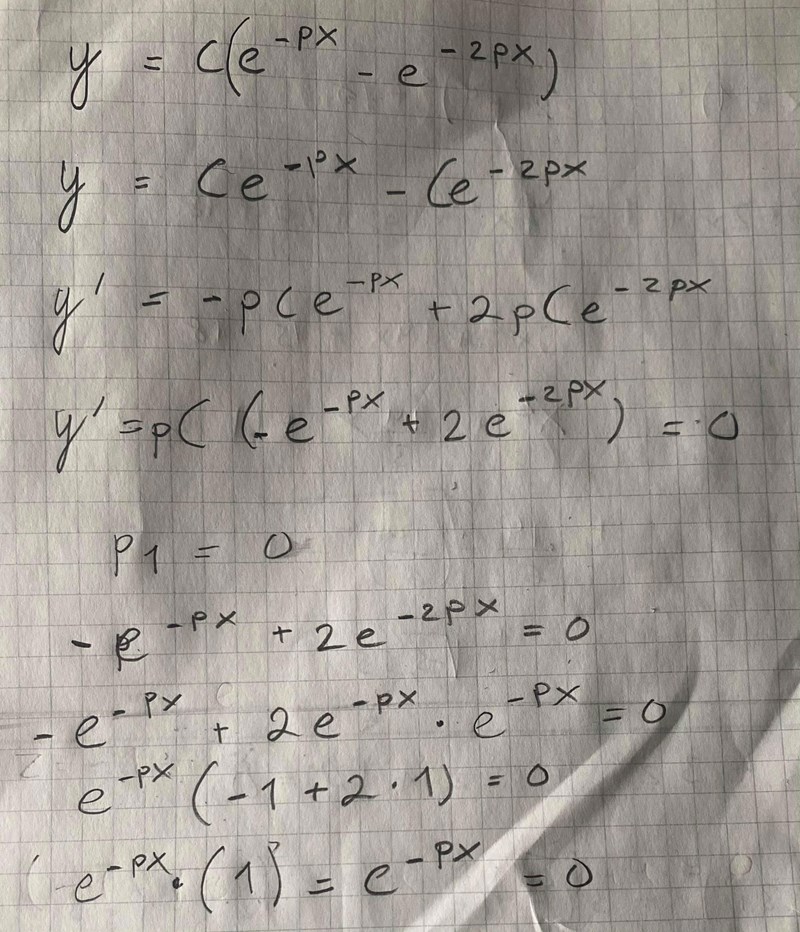 y = C(e^{-px} - e^{-2px})
y = Ce^{-px} - Ce^{-2px}
y' = -pCe^{-px} + 2pCe^{-2px}
y' = pC(-e^{-px} + 2e^{-2px}) = 0
p1 = 0
-e^{-px} + 2e^{-2px} = 0
-e^{-px} + 2e^{-px} · e^{-px} = 0
e^{-px}(-1 + 2·1) = 0
e^{-px}·(1) = e^{-px} = 0